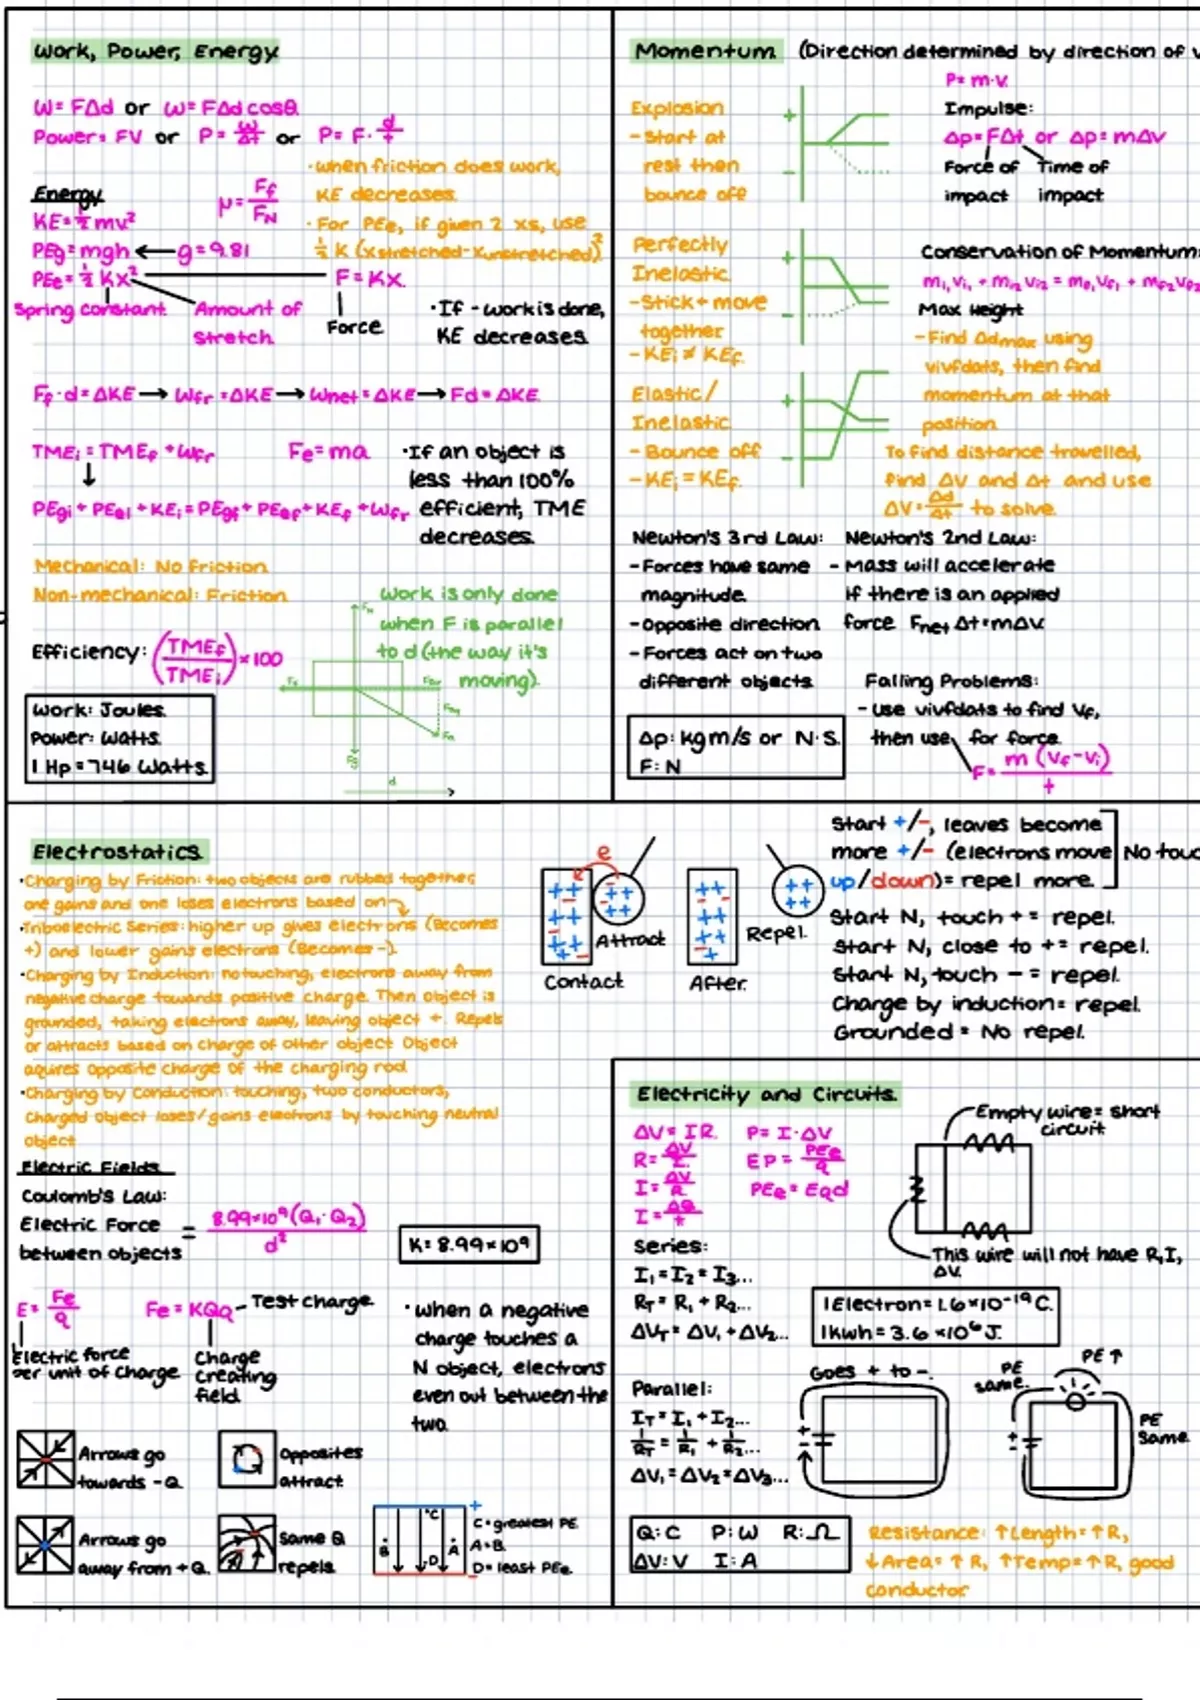 Work, Power, Energy
W = FΔd or W = FΔd cosθ
Power = FV or P = W/Δt or P = F · d/t
· When friction does work,
KE decreases.
Energy
μ = Ff/FN
KE = ½ mv²
· For PEe, if given 2 xs, use
½ K (xstretched - xunstretched)²
PEg = mgh ← g = 9.81
PEe = ½ Kx²
F = Kx
Spring constant
Amount of
stretch
Force
· If - work is done,
KE decreases
Ff · d = ΔKE → Wfr = ΔKE → Wnet = ΔKE → Fd = ΔKE
TMEi = TMEf + Wfr
Fe = ma
· If an object is
less than 100%
efficient, TME
decreases.
PEgi + PEei + KEi = PEgf + PEef + KEf + Wfr
Mechanical: No friction
Non-mechanical: Friction
Work is only done
when F is parallel
to d (the way it's
moving).
Efficiency: (TMEf/TMEi) × 100
Work: Joules
Power: Watts
1 Hp = 746 Watts
d
Momentum (Direction determined by direction of v
P = m·v
Explosion
- Start at
rest then
bounce off
Impulse:
Δp = FΔt or Δp = mΔv
Force of
impact
Time of
impact
Perfectly
Inelastic
- Stick + move
together
- KEi ≠ KEf
Conservation of Momentum:
Max Height
- Find Δdmax using
vivfdats, then find
momentum at that
position
Elastic/
Inelastic
- Bounce off
- KEi = KEf
To find distance travelled,
find ΔV and Δt and use
ΔV = Δd/Δt to solve
Newton's 3rd Law:
- Forces have same
magnitude
- Opposite direction
- Forces act on two
different objects
Newton's 2nd Law:
- Mass will accelerate
if there is an applied
force Fnet Δt = mΔV
Falling Problems:
- Use vivfdats to find Vf,
then use, for force.
F = m (Vf - Vi)/t
Δp: Kgm/s or N·S
F: N
Electrostatics
· Charging by Friction: two objects are rubbed together,
one gains and one loses electrons based on
· Triboelectric Series: higher up gives electrons (Becomes
+) and lower gains electrons (Becomes -).
· Charging by Induction: no touching, electrons away from
negative charge towards positive charge. Then object is
grounded, taking electrons away, leaving object +. Repels
or attracts based on charge of other object Object
aquires opposite charge of the charging rod
· Charging by Conduction: touching, two conductors,
Charged object loses/gains electrons by touching neutral
object
e
Attract
Contact
Repel
After
Start +/-, leaves become
more +/- (electrons move
up/down) = repel more.
No touc
Start N, touch + = repel.
Start N, close to + = repel.
Start N, touch - = repel.
Charge by induction = repel.
Grounded = No repel.
Electric Fields
Coulomb's Law:
Electric Force
between objects
= 8.99×10⁹ (Q₁ · Q₂)/d²
K = 8.99×10⁹
E = Fe/q
Electric force
per unit of charge
Fe = KQq - Test charge
Charge
creating
field
· When a negative
charge touches a
N object, electrons
even out between the
two.
Arrows go
towards -Q
Opposites
attract
Arrows go
away from +Q
Same Q
repels
+
·C
B
A
·D
-
C = greatest PE
A = B
D = least PEe
Electricity and Circuits
ΔV = IR
P = I·ΔV
R = ΔV/I
EP = PEe/q
I = ΔV/R
PEe = Eqd
I = ΔQ/t
Empty wire = short
circuit
This wire will not have R, I,
ΔV
Series:
I₁ = I₂ = I₃...
RT = R₁ + R₂...
ΔVT = ΔV₁ + ΔV₂...
1 Electron = 1.6×10⁻¹⁹ C
1 kwh = 3.6 ×10⁶ J
Parallel:
IT = I₁ + I₂...
1/RT = 1/R₁ + 1/R₂...
ΔV₁ = ΔV₂ = ΔV₃...
Goes + to -
PE
same
PE ↑
PE
Same
Q: C P: W R: Ω
ΔV: V I: A
Resistance: ↑Length = ↑R,
↓Area = ↑R, ↑Temp = ↑R, good
conductor